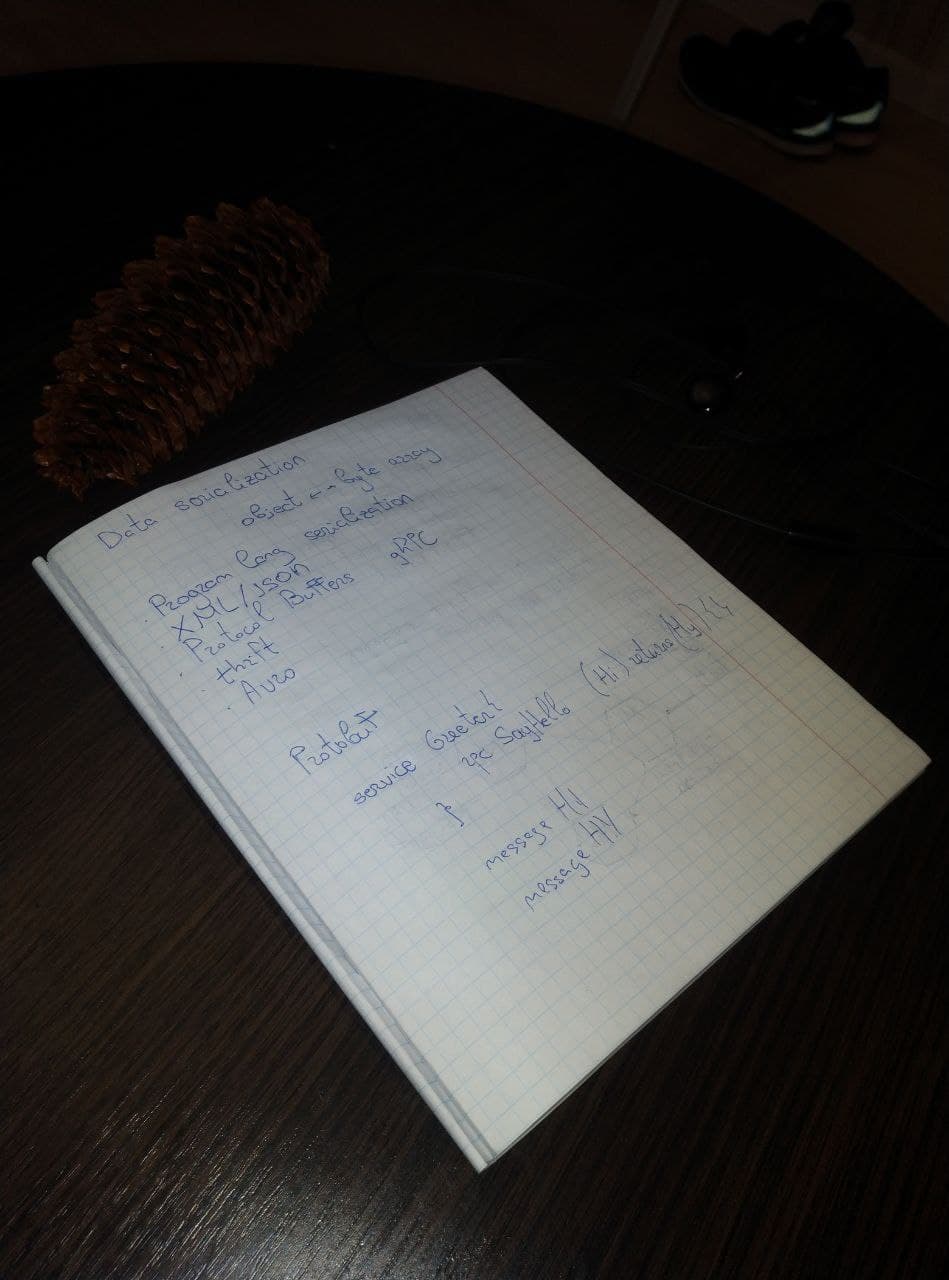 Data serialization
object <-> byte array
· Program lang serialization
· XML/JSON
· Protocol Buffers gRPC
· thrift
· Avro
Protobuf
service Greeter{
rpc SayHello (Hi) returns (Hy) {}
}
message HI
message HY